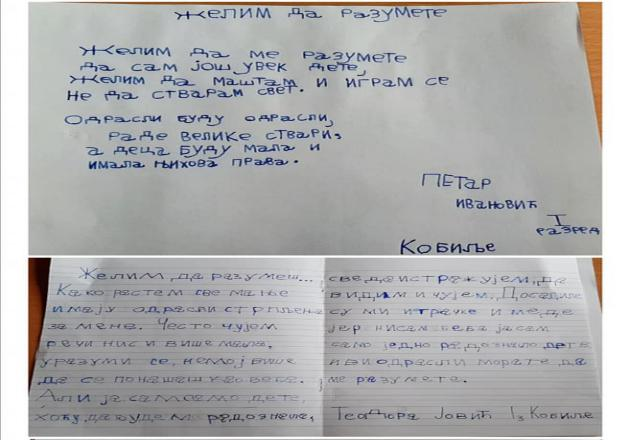 Желим да разумете
Желим да ме разумете
да сам још увек дете,
Желим да маштам и играм се
не да стварам свет.
Одрасли буду одрасли,
раде велике ствари,
а деца буду мала и
имала њихова права.
Петар
Ивановић
I
разред
Кобиље
Желим да разумеш...
Како растем све мање
имају одрасли стрпљења
за мене. Често чујем
речи нис и више мала,
уразуми се, немој више
да се понашаш као беба.
Али ја сам само дете,
хоћу да будем радознала,
све да истражујем, да
видим и чујем. Досадиле
су ми играчке и меде
јер нисам беба ја сам
само једно радознало дете
и ви одрасли морате да
ме разумете.
Теадора Јовић Iз Кобиље